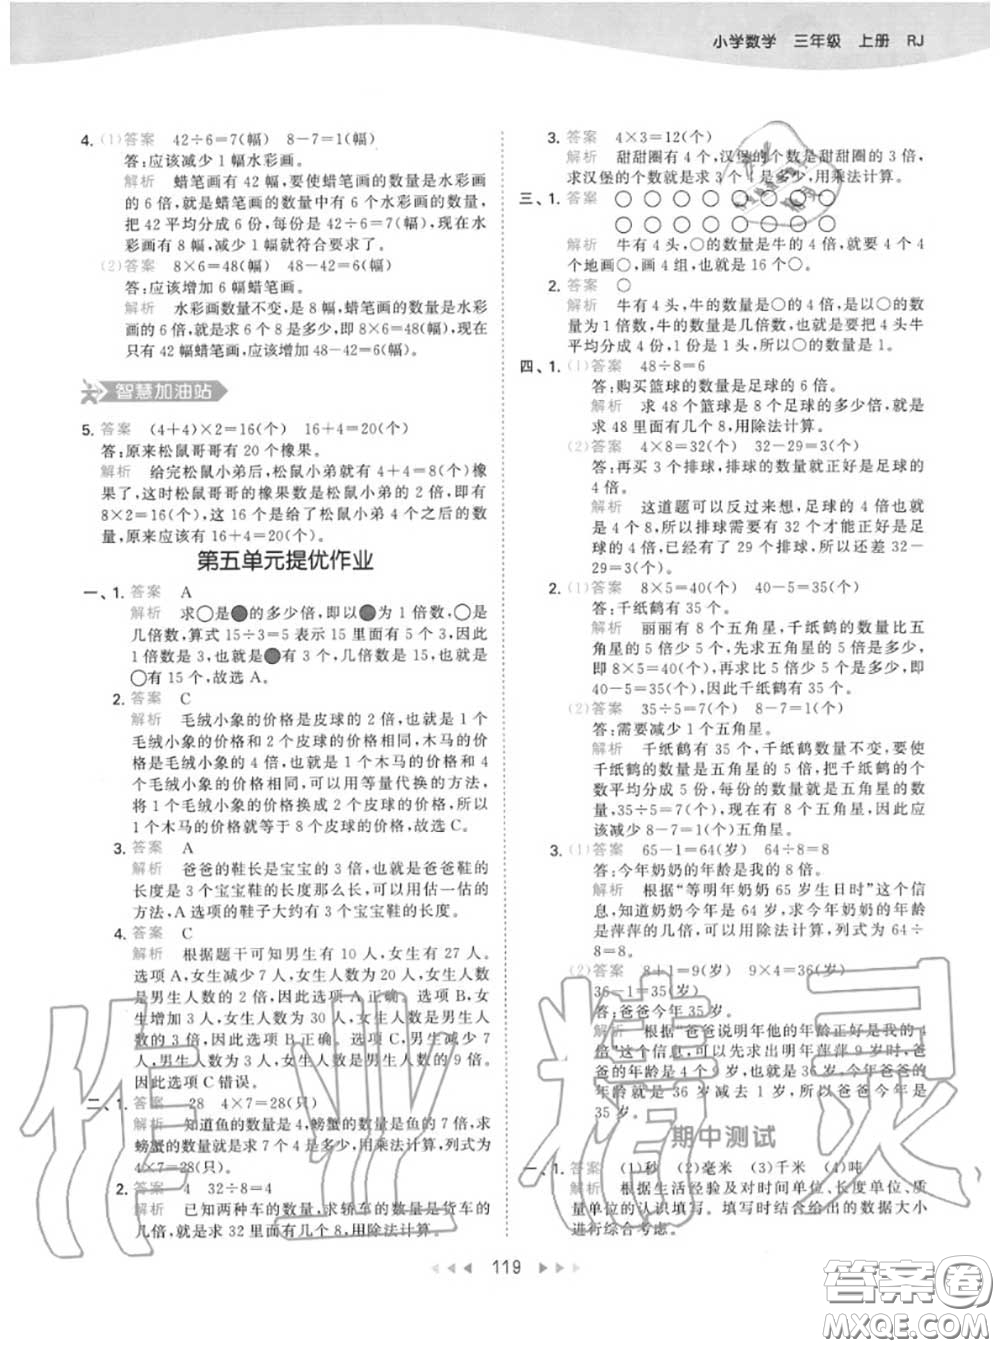 小学数学 三年级 上册 RJ
4. (1)答案 42÷6=7(幅) 8-7=1(幅)
答:应该减少1幅水彩画。
解析 蜡笔画有42幅,要使蜡笔画的数量是水彩画
的6倍,就是蜡笔画的数量中有6个水彩画的数量,
把42平均分成6份,每份是42÷6=7(幅),现在水
彩画有8幅,减少1幅就符合要求了。
(2)答案 8×6=48(幅) 48-42=6(幅)
答:应该增加6幅蜡笔画。
解析 水彩画数量不变,是8幅,蜡笔画的数量是水彩
画的6倍,就是求6个8是多少,即8×6=48(幅),现在
只有42幅蜡笔画,应该增加48-42=6(幅)。
智慧加油站
5. 答案 (4+4)×2=16(个) 16+4=20(个)
答:原来松鼠哥哥有20个橡果。
解析 给完松鼠小弟后,松鼠小弟就有4+4=8(个)橡
果了,这时松鼠哥哥的橡果数是松鼠小弟的2倍,即有
8×2=16(个),这16个是给了松鼠小弟4个之后的数
量,原来应该有16+4=20(个)。
第五单元提优作业
一、1. 答案 A
解析 求○是●的多少倍,即以●为1倍数,○是
几倍数,算式15÷3=5表示15里面有5个3,因此
1倍数是3,也就是●有3个,几倍数是15,也就是
○有15个,故选A。
2. 答案 C
解析 毛绒小象的价格是皮球的2倍,也就是1个
毛绒小象的价格和2个皮球的价格相同,木马的价格
是毛绒小象的4倍,也就是1个木马的价格和4个
毛绒小象的价格相同,可以用等量代换的方法,
将1个毛绒小象的价格换成2个皮球的价格,所以
1个木马的价格就等于8个皮球的价格,故选C。
3. 答案 A
解析 爸爸的鞋长是宝宝的3倍,也就是爸爸鞋的
长度是3个宝宝鞋的长度那么长,可以用估一估的
方法,A选项的鞋子大约有3个宝宝鞋的长度。
4. 答案 C
解析 根据题干可知男生有10人,女生有27人。
选项A,女生减少7人,女生人数为20人,女生人数
是男生人数的2倍,因此选项A正确。选项B,女
生增加3人,女生人数为30人,女生人数是男生人
数的3倍,因此选项B正确。选项C,男生减少7
人,男生人数为3人,女生人数是男生人数的9倍。
因此选项C错误。
二、1. 答案 28 4×7=28(只)
解析 知道鱼的数量是4,螃蟹的数量是鱼的7倍,求
螃蟹的数量就是求7个4是多少,用乘法计算,列式为
4×7=28(只)。
2. 答案 4 32÷8=4
解析 已知两种车的数量,求轿车的数量是货车的
几倍,就是求32里面有几个8,用除法计算。
3. 答案 4×3=12(个)
解析 甜甜圈有4个,汉堡的个数是甜甜圈的3倍,
求汉堡的个数就是求3个4是多少,用乘法计算。
三、1. 答案 ○ ○ ○ ○ ○ ○ ○ ○
○ ○ ○ ○ ○ ○ ○ ○
解析 牛有4头,○的数量是牛的4倍,就要4个4
个地画○,画4组,也就是16个○。
2. 答案 ○
解析 牛有4头,牛的数量是○的4倍,就以○的数
量为1倍数,牛的数量是几倍数,也就是要把4头牛
平均分成4份,1份是1头,所以○的数量是1。
四、1. (1)答案 48÷8=6
答:购买篮球的数量是足球的6倍。
解析 求48个篮球是8个足球的多少倍,就是
求48里面有几个8,用除法计算。
(2)答案 4×8=32(个) 32-29=3(个)
答:再买3个排球,排球的数量就正好是足球的
4倍。
解析 这道题可以反过来想,足球的4倍,也就是
4个8,所以排球需要有32个才能正好是足球的
4倍,已经有了29个排球,所以还差32-
29=3(个)。
2. (1)答案 8×5=40(个) 40-5=35(个)
答:千纸鹤有35个。
解析 丽丽有8个五角星,千纸鹤的数量比五
角星的5倍少5个,先求五角星的5倍是多少,
即8×5=40(个),再求比5倍少5个是多少,即
40-5=35(个),因此千纸鹤有35个。
(2)答案 35÷5=7(个) 8-7=1(个)
答:需要减少1个五角星。
解析 千纸鹤有35个,千纸鹤数量不变,要使
千纸鹤的数量是五角星的5倍,把千纸鹤的个
数平均分成5份,每份的数量就是五角星的数
量,35÷5=7(个),现在有8个五角星,因此应
该减少8-7=1(个)五角星。
3. (1)答案 65-1=64(岁) 64÷8=8
答:今年奶奶的年龄是我的8倍。
解析 根据“等明年奶奶65岁生日时”这个信
息,知道奶奶今年是64岁,求今年奶奶的年龄
是萍萍的几倍,可以用除法计算,列式为64÷
8=8。
(2)答案 8+1=9(岁) 9×4=36(岁)
36-1=35(岁)
答:爸爸今年35岁。
解析 根据“爸爸说明年他的年龄正好是我的4
倍”这个信息,可以先求出明年萍萍9岁时,爸
爸的年龄是4个9岁,也就是36岁,今年爸爸的
年龄就是36岁减去1岁,所以爸爸今年是
35岁。
期中测试
一、1. 答案 (1)秒 (2)毫米 (3)千米 (4)吨
解析 根据生活经验及对时间单位、长度单位、质
量单位的认识填写。填写时结合给出的数据大小
进行综合考虑。
119
作业精灵
答案圈
MXQE.COM